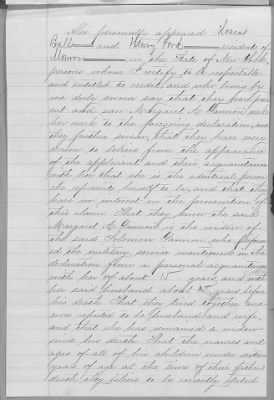 Also personally appeared Horace
Ball and Henry Ford residents of
in the State of New York
persons whom I certify to be respectable
and entitled to credit and who being by
me duly sworn say that they were pres
ent and saw Margaret A. Gannon make
her mark to the foregoing declaration, and
they further swear, that they have every
reason to believe from the appearance
of the applicant and their acquaintance
with her that she is the identical person
she represents herself to be, and that they
have no interest in the prosecution of
this claim That they know the said
Margaret A Gannon is the widow of
the said Solomon Gannon who perform
ed the military service mentioned in the
declaration from a personal acquaintance
with her of about 15 years, and with
her said husband about 15 years before
his death That they lived together and
were reputed to be husband and wife,
and that she has remained a widow
since his death That the names and
ages of all of his children under sixteen
years of age at the time of their father's
death they believe to be correctly stated